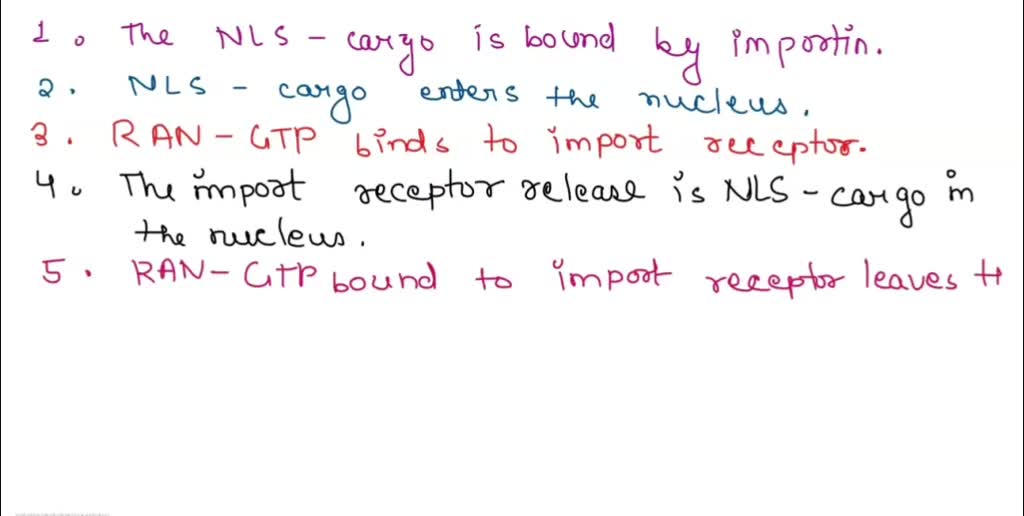 1. The NLS - cargo is bound by importin.
2. NLS - cargo enters the nucleus.
3. RAN-GTP binds to import receptor.
4. The import receptor release is NLS - cargo in
the nucleus.
5. RAN-GTP bound to import receptor leaves t